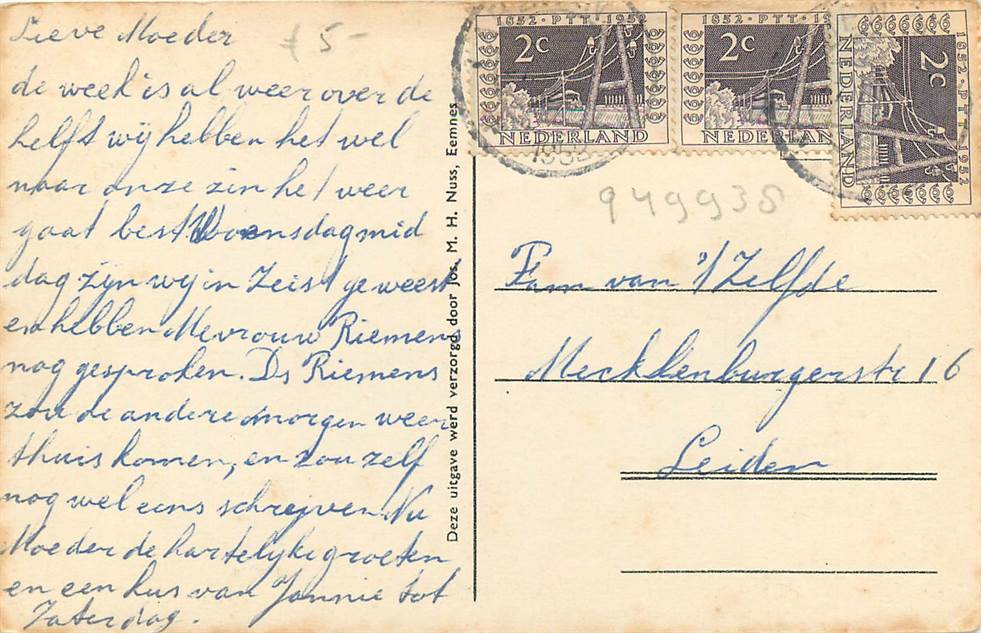 Lieve Moeder
ƒ 5-
de week is al weer over de
helft wij hebben het wel
naar onze zin het weer
gaat best Woensdagmid
dag zijn wij in Zeist geweest
en hebben Mevrouw Riemens
nog gesproken. Ds Riemens
zou de andere morgen weer
thuis komen, en zou zelf
nog wel eens schrijven Nu
Moeder de hartelijke groeten
en een kus van Jannie tot
Zaterdag.
Deze uitgave werd verzorgd door Jos. M. H. Nuss, Eemnes
1852 · PTT · 1952
2c
NEDERLAND
1852 · PTT · 1952
2c
NEDERLAND
1852 · PTT · 1952
2c
NEDERLAND
1952
949935
Fam van 't Zelfde
Mecklenburgerstr 16
Leiden